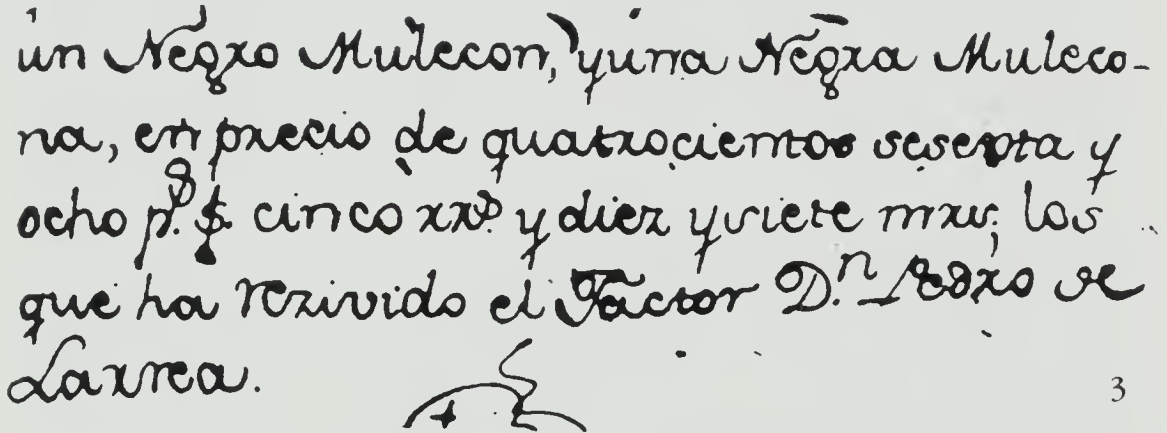 un Negro Mulecon, y una Negra Muleco-
na, en precio de quatrocientos sesenta y
ocho p.s $ cinco rr.s y diez y siete mrs; los
que ha rezivido el Factor D.n Pedro de
Larrea.
3